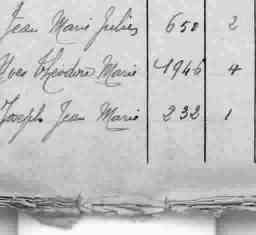 Jean Marie Julien 650 2
Yves Théodore Marie 1946 4
Joseph Jean Marie 232 1